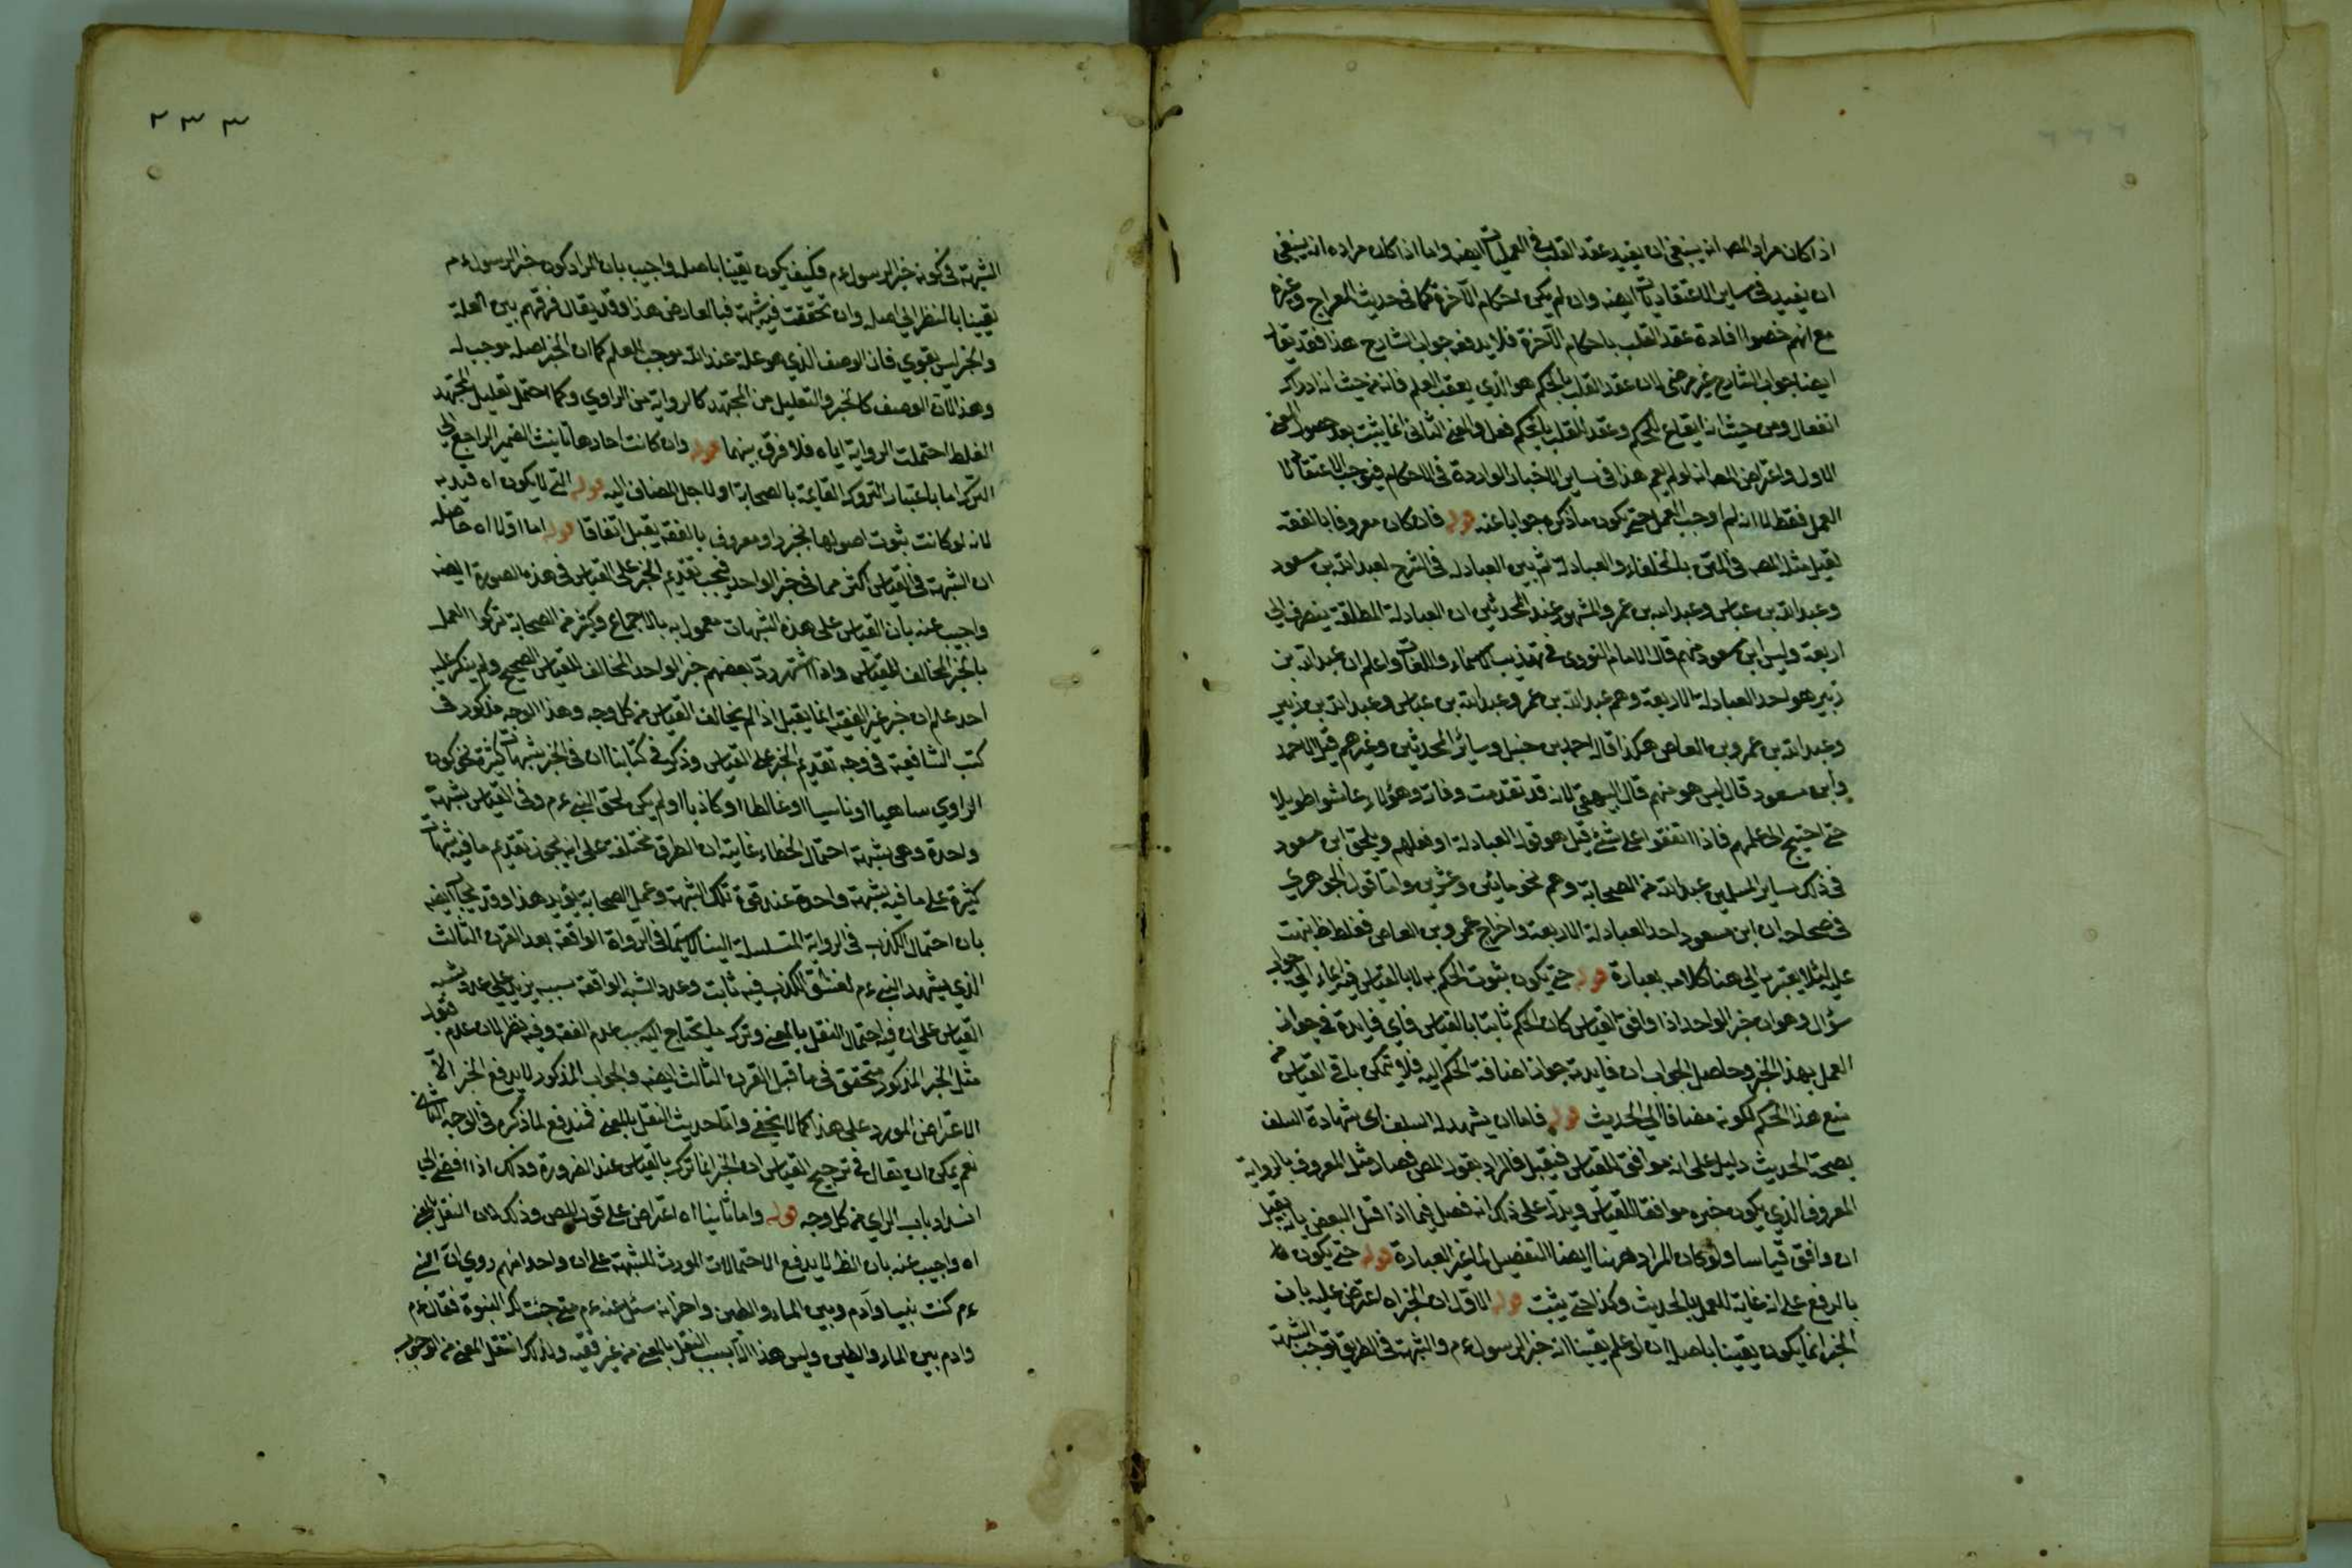 اذا كان مراد المصـ انه ينبغي ان يفيد عقد القلب في العمليات ايضه واما اذا كان مراده انه ينبغي
ان يفيد في ساير الاعتقاديات ايضه وان لم يكن احكام الآخرة كما في حديث المعراج وغيره
مع انهم خصوا افادة عقد القلب باحكام الآخرة فلا يدفعه جواب الشارح هذا فقد يقال
ايضا جواب الشارح غير مرضي لان عقد القلب بالحكم هو الذي يعقب العلم فانه من حيث انه ادراك
انفعال ومن حيث انه ايقاع الحكم وعقد القلب بالحكم فعل والمعنى الثاني انما يثبت بعد حصول المعنى
الاول واعتراض المصـ انه لو لم يعم هذا في ساير الاخبار الواردة في الاحكام فيوجب الاعتقاد لا
العمل فقط لا انه لم اوجب العمل حتى يكون ما ذكره جوابا عنه قوله فان كان معروفا بالفقه
لقيل مثل المصـ في المتن بالخلفاء والعبادلة ثم بين العبادلة في الشرح لعبد الله بن مسعود
وعبد الله بن عباس وعبد الله بن عمر والمشهور عند المحدثين ان العبادلة المطلقة ينصرف الى
اربعة وليس ابن مسعود منهم قال الامام النووي في تهذيب الاسماء واللغات واعلم ان عبد الله بن
زبير هو احد العبادلة الاربعة وهم عبد الله بن عمر وعبد الله بن عباس وعبد الله بن زبير
وعبد الله بن عمرو بن العاص هكذا قاله احمد بن حنبل وسائر المحدثين وغيرهم قيل لاحمد
وابن مسعود قال ليس هو منهم قال البيهقي لانه قد تقدمت وفاته وهؤلاء عاشوا طويلا
حتى احتيج الى علمهم فاذا اتفقوا على شئ قيل هو قول العبادلة او فعلهم ويلحق ابن مسعود
في ذلك ساير المسلمين عبد الله من الصحابة وهم نحو مائين وعشرين واما قول الجوهري
في صحاحه ان ابن مسعود احد العبادلة الاربعة واخراج عمرو بن العاص فغلط ظ نبهت
عليه لئلا يغتر به الى هنا كلامه بعبارة قوله حتى يكون ثبوت الحكم به لا بالقياس فيه ايماء الى جواب
سؤال وهو ان خبر الواحد اذا وافق القياس كان الحكم ثابتا بالقياس فاى فايدة في جواز
العمل بهذا الخبر وحاصل الجواب ان فايدته جواز اضافة الحكم اليه فلا يتمكن باقي القياس من
منع هذا الحكم لكونه مضافا الى الحديث قوله فاما ان يشهد له السلف اى شهادة السلف
بصحة الحديث دليل على انه موافق للقياس فيقبل فالمراد بقول المصـ فصار مثل المعروف بالرواية
المعروف الذي يكون خبره موافقا للقياس ويدل على ذلك انه فصل فيما اذا قبل البعض بانه يقبل
ان وافق قياسا ولو كان المراد ههنا ايضا التفصيل لما غير العبارة قوله حتى يكون
بالرفع على انه غاية للعمل بالحديث وكذا حتى يثبت قوله الاول ان الخبر اه اعترض عليه بان
الخبر انما يكون يقينا باصله ان لو علم يقينا انه خبر الرسول ءم والشبهة في الطريق توجب الشبهة
٢٣٣
الشبهة في كونه خبر الرسول ءم فكيف يكون يقينا باصله واجيب بان المراد كون خبر الرسول ءم
يقينا بالنظر الى اصله وان تحققت فيه شبهة فبالعارض هذا وقد يقال فرقهم بين العلة
والخبر ليس بقوي فان الوصف الذي هو علة عند الله موجب للعلم كما ان الخبر اصله موجب له
وهذا لان الوصف كالخبر والتعليل من المجتهد كالرواية من الراوي وكما احتمل تعليل المجتهد
الغلط احتملت الرواية اياه فلا فرق بينهما قوله وان كانت احادها تانيث الضمير الراجع الى
الترك اما باعتبار التروك القايمة بالصحابة او لاجل المضاف اليه قوله التي لا يكون اه قيد به
لانه لو كانت ثبوت اصولها بخبر راو معروف بالفقه يقبل اتفاقا قوله اما اولا اه حاصله
ان الشبهة في القياس اكثر مما في خبر الواحد فيجب تقديم الخبر على القياس في هذه الصورة ايضه
واجيب عنه بان القياس على هذه الشبهات معمول به بالاجماع وكثير من الصحابة تركوا العمل
بالخبر المخالف للقياس واذا اشتهر رد بعضهم خبر الواحد المخالف للقياس الصحيح ولم ينكر عليه
احد علم ان خبر غير الفقيه انما يقبل اذا لم يخالف القياس من كل وجه وهذا الوجه مذكور في
كتب الشافعية في وجه تقديم الخبر على القياس وذكر في كتابنا ان في الخبر شبهات كثيرة نحو كون
الراوي ساهيا او ناسيا او غالطا او كاذبا او لم يكن لحق النبي ءم وفي القياس شبهة
واحدة وهي شبهة احتمال الخطاء غايته ان الطرق مختلفة على انه يجوز تقديم ما فيه شبهات
كثيرة على ما فيه شبهة واحدة عند قوة تلك الشبهة وعمل الصحابة يؤيد هذا وقد يجاب ايضه
بان احتمال الكذب في الرواية المتسلسلة الينا لا سيما في الرواة الواقعة بعد القرن الثالث
الذي يشهد النبي ءم لفشو الكذب فيه ثابت وعدد الشبه الواقعة بسببه يزيد على عدد شبه
القياس على ان فيه احتمال النقل بالمعنى وترك ما يحتاج اليه بسبب عدم الفقه وفيه نظر لان عدم قبول
مثل الخبر المذكور متحقق في ما قبل القرن الثالث ايضه والجواب المذكور لا يدفع الخبر الا
الاعتراض المورد على هذا كما لا يخفى واما حديث النقل بالمعنى فمندفع لما ذكره في الوجه الثاني
نعم يمكن ان يقال في ترجيح القياس ان الخبر انما ترك بالقياس عند الضرورة وذلك اذا افضى الى
انسداد باب الراي من كل وجه قوله واما ثانيا اه اعتراض على قول المصـ وذلك لان النقل بالمعنى
اه واجيب عنه بان الظ لا يدفع الاحتمالات المورث للشبهة على ان واحدا منهم روي ان النبي
ءم كنت نبيا وآدم وبين الماء والطين واخر انه سئل عنه ءم متى جئت لك النبوة فقال ءم
وادم بين الماء والطين وليس هذا الا بسبب النقل بالمعنى من غير فقيه ولذلك انتقل المعنى من الوجوب